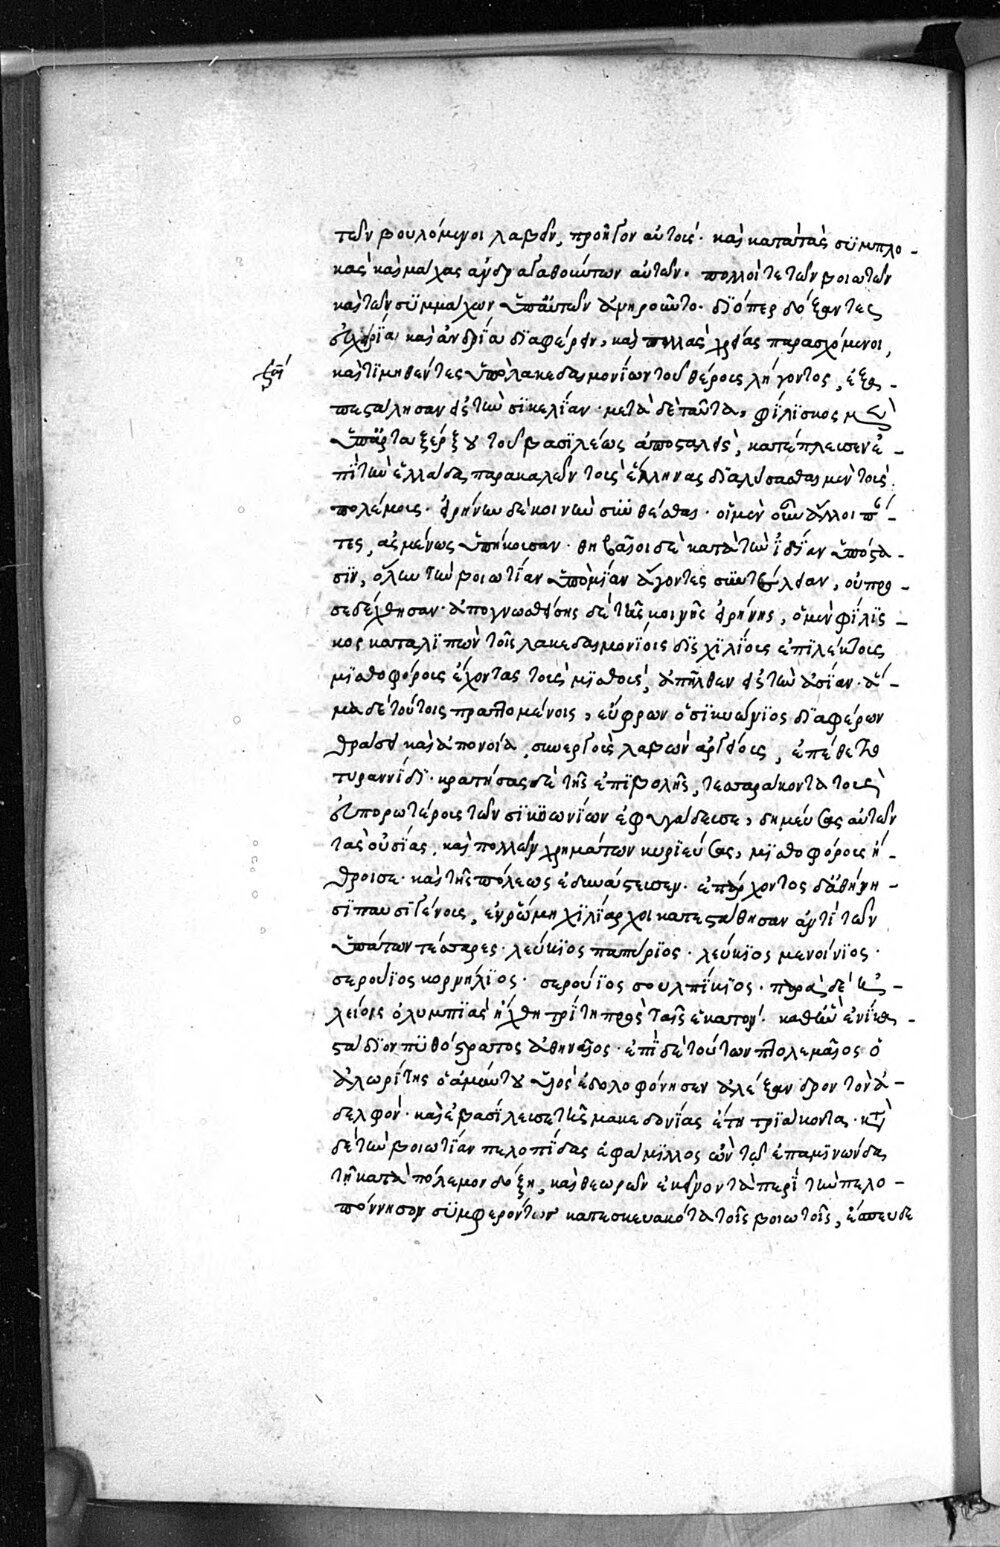 τῶν βουλόμενοι λαβεῖν, προῆγον αὐτούς· καὶ κατὰ τὰς συμπλο-
κὰς καὶ μάχας ἀνδραγαθούντων αὐτῶν· πολλοί τε τῶν βοιωτῶν
καὶ τῶν συμμάχων ὑπ' αὐτῶν ἀνηροῦντο· διόπερ δόξαντες
εὐχειρία καὶ ἀνδρία διαφέρειν, καὶ πολλὰς χρείας παρασχόμενοι,
καὶ τιμηθέντες ὑπὸ λακεδαιμονίων τοῦ θέρους λήγοντος, ἐξα-
πεστάλησαν εἰς τὴν σικελίαν· μετὰ δὲ ταῦτα, φιλίσκος μὲν
ὑπ' ἀρταξέρξου τοῦ βασιλέως ἀποσταλεὶς, κατέπλευσεν ἐ-
πὶ τὴν ἑλλάδα, παρακαλῶν τοὺς ἕλληνας διαλύσασθαι μὲν τοὺς
πολέμους· εἰρήνην δὲ κοινὴν συνθέσθαι· οἱ μὲν οὖν ἄλλοι πάν-
τες, ἀσμένως ὑπήκουσαν· θηβαῖοι δὲ κατὰ τὴν ἰδίαν ὑπόστα-
σιν, ὅλην τὴν βοιωτίαν ὑπὸ μίαν ἄγοντες συντέλειαν, οὐ προ-
σεδέχθησαν· ἀπογνωσθείσης δὲ τῆς κοινῆς εἰρήνης, ὁ μὲν φιλίσ-
κος καταλιπὼν τοῖς λακεδαιμονίοις δισχιλίους ἐπιλέκτους
μισθοφόρους ἔχοντας τοὺς μισθοὺς, ἀπῆλθεν εἰς τὴν ἀσίαν· ἅ-
μα δὲ τούτοις πραττομένοις, εὔφρων ὁ σικυώνιος διαφέρων
θράσει καὶ ἀπονοία, συνεργοὺς λαβὼν ἀργείους, ἐπέθετο
τυραννίδι· κρατήσας δὲ τῆς ἐπιβολῆς, τεσσαράκοντα τοὺς
εὐπορωτέρους τῶν σικυωνίων ἐφυγάδευσε, δημεύσας αὐτῶν
τὰς οὐσίας, καὶ πολλῶν χρημάτων κυριεύσας, μισθοφόρους ἤ-
θροισε· καὶ τῆς πόλεως ἐδυνάστευσεν· ἐπ' ἄρχοντος δ' ἀθήνη-
σι παυσιγένους, ἐν ῥώμη χιλίαρχοι κατεστάθησαν ἀντὶ τῶν
ὑπάτων τέσσαρες· λεύκιος παπύριος· λεύκιος μενοίνιος·
σερούιος κορνήλιος· σερούιος σουλπίκιος· παρὰ δὲ ἠ-
λείοις ὀλυμπιὰς ἤχθη τρίτη πρὸς ταῖς ἑκατόν· καθ' ἣν ἐνίκα
στάδιον πυθόστρατος ἀθηναῖος· ἐπὶ δὲ τούτων πτολεμαῖος ὁ
ἀλωρίτης ὁ ἀμύντου υἱὸς ἐδολοφόνησεν ἀλέξανδρον τὸν ἀ-
δελφόν· καὶ ἐβασίλευσε τῆς μακεδονίας ἔτη τριάκοντα· κατὰ
δὲ τὴν βοιωτίαν πελοπίδας ἐφάμιλλος ὢν τῷ ἐπαμινώνδα
τῆ κατὰ πόλεμον δόξη, καὶ θεωρῶν ἐκεῖνον τὰ περὶ τὴν πελο-
πόννησον συμφερόντως κατεσκευακότα τοῖς βοιωτοῖς, ἔσπευδε